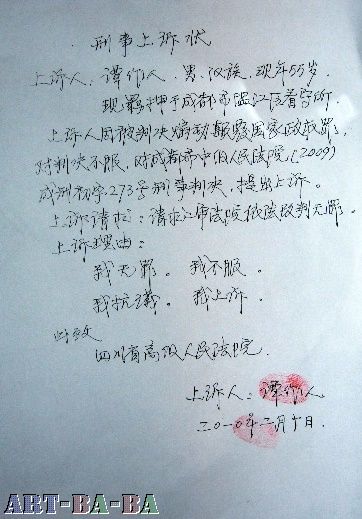 刑事上诉状
上诉人：谭作人，男，汉族，现年55岁，
现羁押于成都市温江区看守所。
上诉人因被判决煽动颠覆国家政权罪，
对判决不服，对成都市中级人民法院（2009）
成刑初字273号刑事判决，提出上诉。
上诉请求：请求二审法院依法改判无罪。
上诉理由：
我无罪。我不服。
我抗议。我上诉。
此致
四川省高级人民法院
上诉人：谭作人
二〇一〇年二月十日
ART-BA-BA